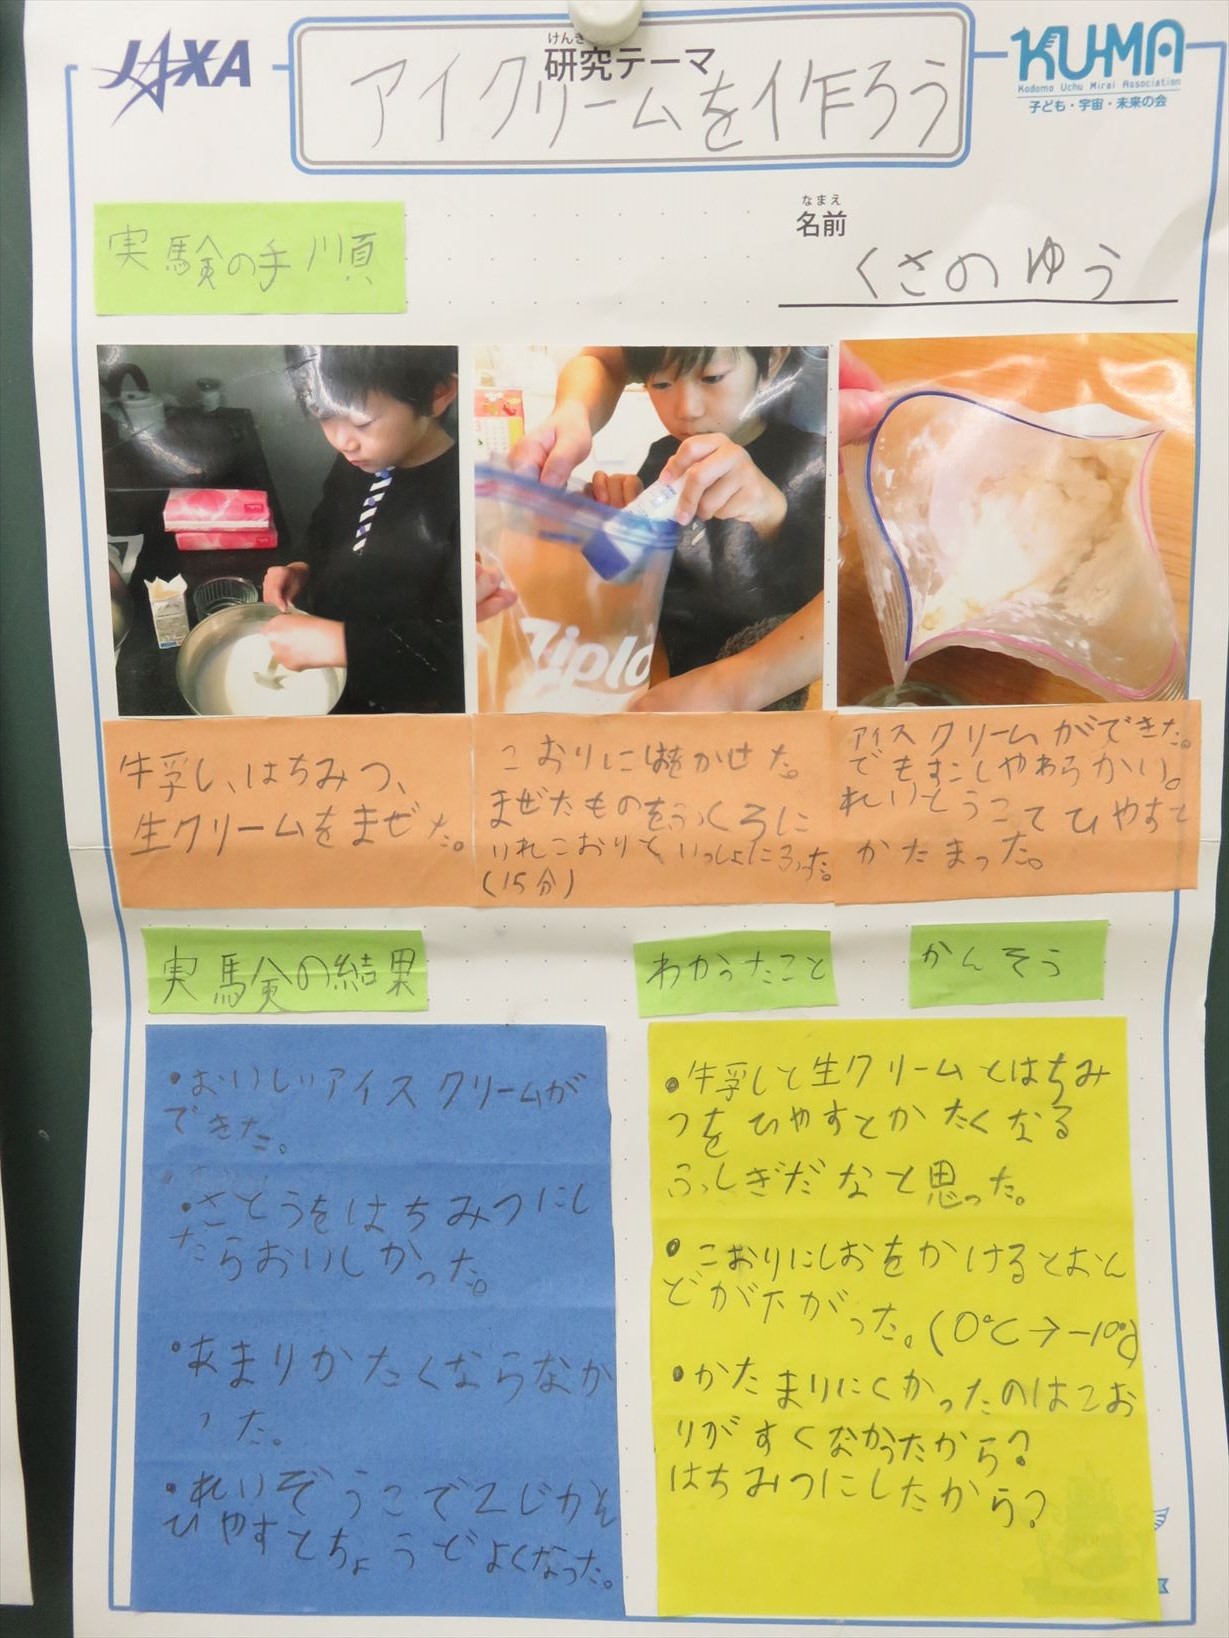 JAXA
けんき
研究テーマ
アイクリームを作ろう
KU-MA
Kodomo Uchu Mirai Association
子ども・宇宙・未来の会
なまえ
名前
くさのゆう
実験の手順
Ziplo
牛乳し、はちみつ、
生クリームをまぜた。
こおりに をかせた。
まぜたものをふくろに
いれこおりといっしょにふった。
(15分)
アイスクリームができた。
でもすこしやわらかい。
れいとうこで ひやすと
かたまった。
実験の結果
・おいしいアイスクリームが
できた。
・さとうをはちみつにし
たらおいしかった。
・あまりかたくならなか
った。
・れいぞうこで2じかん
ひやすとちょうどよくなった。
わかったこと
かんそう
・牛乳しと生クリームとはちみ
つをひやすとかたくなる
ふしぎだなと思った。
・こおりにしおをかけるとおん
どがたがった。(0℃→-10℃)
・かたまりにくかったのはこお
りがすくなかったから?
はちみつにしたから?